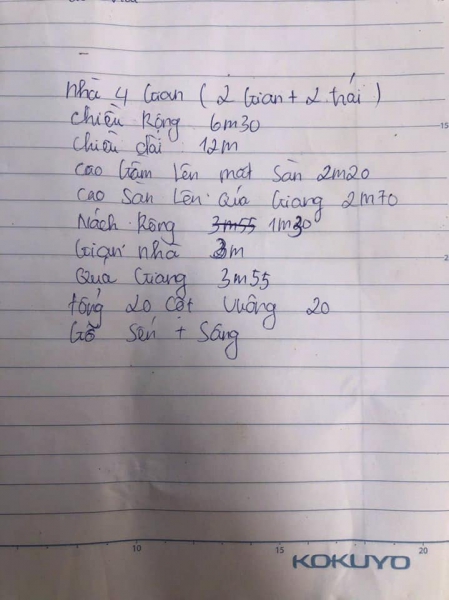 nhà 4 Gian ( 2 Gian + 2 trái )
chiều Rộng 6m30
chiều dài 12m
cao Gầm lên mặt sàn 2m20
cao sàn lên Quá Giang 2m70
Nách Rộng 3m55 1m30
Gian nhà 3m
Quá Giang 3m55
tổng 20 cột vuông 20
Gỗ Sến + Săng
15
10
15
20
KOKUYO